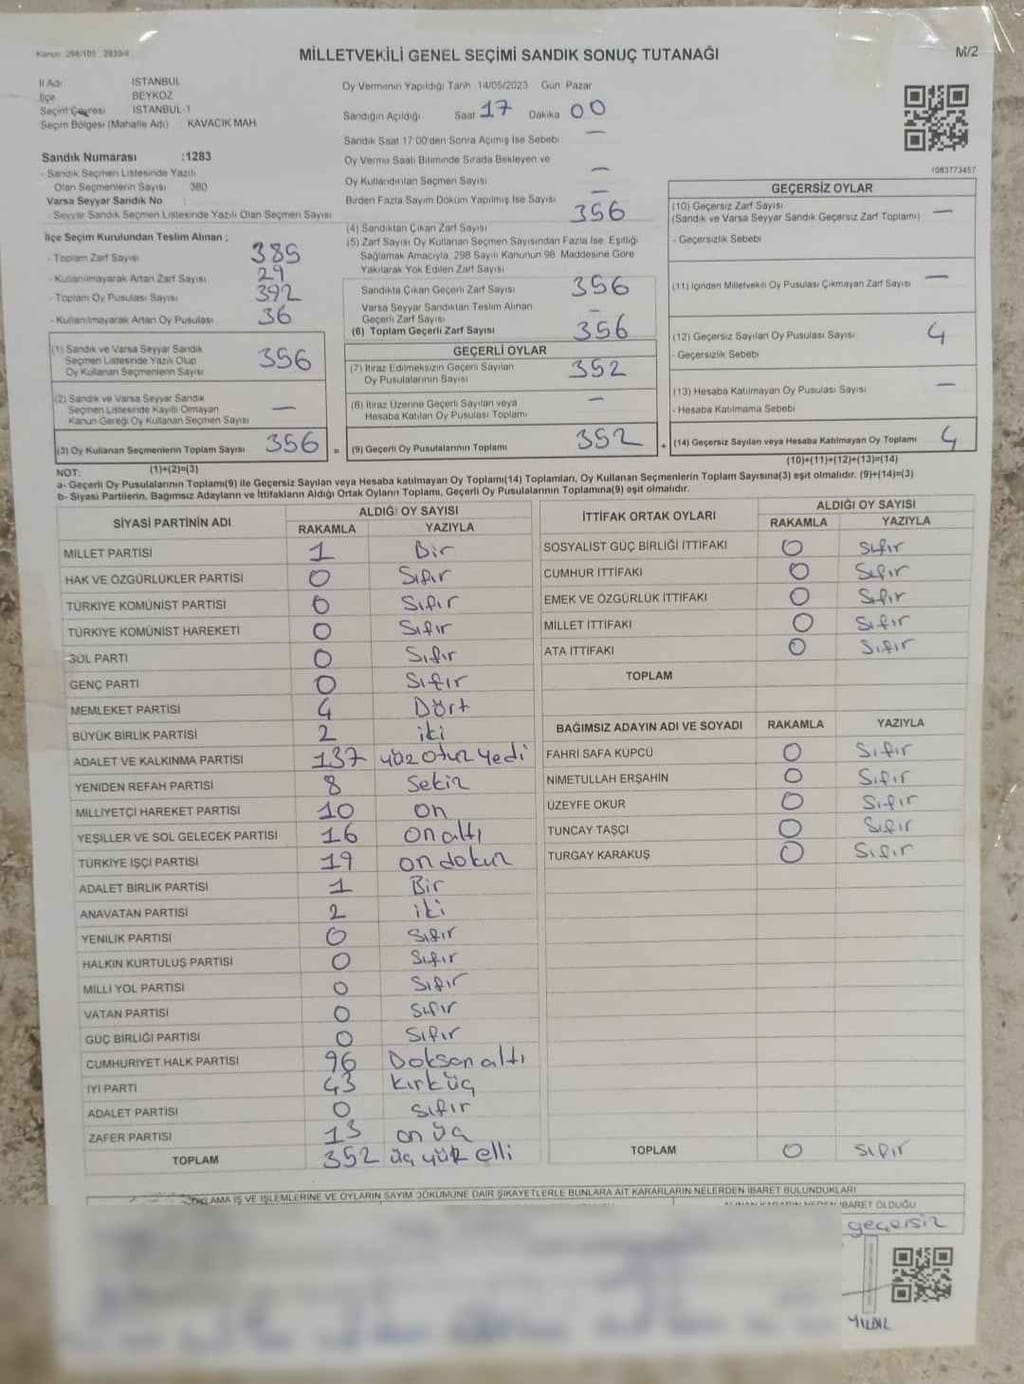 Kanun: 298/101 2839/4
MİLLETVEKİLİ GENEL SEÇİMİ SANDIK SONUÇ TUTANAĞI
M/2
İl Adı İSTANBUL
İlçe BEYKOZ
Seçim Çevresi İSTANBUL-1
Seçim Bölgesi (Mahalle Adı) KAVACIK MAH
Sandık Numarası :1283
- Sandık Seçmen Listesinde Yazılı
Olan Seçmenlerin Sayısı 380
Varsa Seyyar Sandık No
- Seyyar Sandık Seçmen Listesinde Yazılı Olan Seçmen Sayısı
İlçe Seçim Kurulundan Teslim Alınan ;
- Toplam Zarf Sayısı 385
- Kullanılmayarak Artan Zarf Sayısı 29
- Toplam Oy Pusulası Sayısı 392
- Kullanılmayarak Artan Oy Pusulası 36
(1) Sandık ve Varsa Seyyar Sandık
Seçmen Listesinde Yazılı Olup
Oy Kullanan Seçmenlerin Sayısı 356
(2) Sandık ve Varsa Seyyar Sandık
Seçmen Listesinde Kayıtlı Olmayan
Kanun Gereği Oy Kullanan Seçmen Sayısı —
(3) Oy Kullanan Seçmenlerin Toplam Sayısı 356 =
(1)+(2)=(3)
Oy Vermenin Yapıldığı Tarih 14/05/2023 Gün Pazar
Sandığın Açıldığı Saat 17 Dakika 00
Sandık Saat 17:00'den Sonra Açımış İse Sebebi —
Oy Verme Saati Bitiminde Sırada Bekleyen ve
Oy Kullandırılan Seçmen Sayısı —
Birden Fazla Sayım Döküm Yapılmış İse Sayısı —
(4) Sandıktan Çıkan Zarf Sayısı 356
(5) Zarf Sayısı Oy Kullanan Seçmen Sayısından Fazla İse, Eşitliği
Sağlamak Amacıyla, 298 Sayılı Kanunun 98. Maddesine Göre
Yakılarak Yok Edilen Zarf Sayısı
Sandıkta Çıkan Geçerli Zarf Sayısı 356
Varsa Seyyar Sandıktan Teslim Alınan
Geçerli Zarf Sayısı —
(6) Toplam Geçerli Zarf Sayısı 356
GEÇERLİ OYLAR
(7) İtiraz Edilmeksizin Geçerli Sayılan
Oy Pusulalarının Sayısı 352
(8) İtiraz Üzerine Geçerli Sayılan veya
Hesaba Katılan Oy Pusulası Toplamı —
(9) Geçerli Oy Pusulalarının Toplamı 352 +
1083773457
GEÇERSİZ OYLAR
(10) Geçersiz Zarf Sayısı
(Sandık ve Varsa Seyyar Sandık Geçersiz Zarf Toplamı) —
- Geçersizlik Sebebi
(11) İçinden Milletvekili Oy Pusulası Çıkmayan Zarf Sayısı —
(12) Geçersiz Sayılan Oy Pusulası Sayısı 4
- Geçersizlik Sebebi
(13) Hesaba Katılmayan Oy Pusulası Sayısı —
- Hesaba Katılmama Sebebi
(14) Geçersiz Sayılan veya Hesaba Katılmayan Oy Toplamı 4
(10)+(11)+(12)+(13)=(14)
NOT:
a- Geçerli Oy Pusulalarının Toplamı(9) ile Geçersiz Sayılan veya Hesaba katılmayan Oy Toplamı(14) Toplamları, Oy Kullanan Seçmenlerin Toplam Sayısına(3) eşit olmalıdır. (9)+(14)=(3)
b- Siyasi Partilerin, Bağımsız Adayların ve İttifakların Aldığı Ortak Oyların Toplamı, Geçerli Oy Pusulalarının Toplamına(9) eşit olmalıdır.
SİYASİ PARTİNİN ADI ALDIĞI OY SAYISI
RAKAMLA YAZIYLA
MİLLET PARTİSİ 1 Bir
HAK VE ÖZGÜRLÜKLER PARTİSİ 0 Sıfır
TÜRKİYE KOMÜNİST PARTİSİ 0 Sıfır
TÜRKİYE KOMÜNİST HAREKETİ 0 Sıfır
SOL PARTİ 0 Sıfır
GENÇ PARTİ 0 Sıfır
MEMLEKET PARTİSİ 4 Dört
BÜYÜK BİRLİK PARTİSİ 2 iki
ADALET VE KALKINMA PARTİSİ 137 yüz otuz yedi
YENİDEN REFAH PARTİSİ 8 Sekiz
MİLLİYETÇİ HAREKET PARTİSİ 10 on
YEŞİLLER VE SOL GELECEK PARTİSİ 16 on altı
TÜRKİYE İŞÇİ PARTİSİ 19 on dokuz
ADALET BİRLİK PARTİSİ 1 Bir
ANAVATAN PARTİSİ 2 iki
YENİLİK PARTİSİ 0 Sıfır
HALKIN KURTULUŞ PARTİSİ 0 Sıfır
MİLLİ YOL PARTİSİ 0 Sıfır
VATAN PARTİSİ 0 Sıfır
GÜÇ BİRLİĞİ PARTİSİ 0 Sıfır
CUMHURİYET HALK PARTİSİ 96 Doksan altı
İYİ PARTİ 43 Kırk üç
ADALET PARTİSİ 0 Sıfır
ZAFER PARTİSİ 13 on üç
TOPLAM 352 üç yüz elli
İTTİFAK ORTAK OYLARI ALDIĞI OY SAYISI
RAKAMLA YAZIYLA
SOSYALİST GÜÇ BİRLİĞİ İTTİFAKI 0 Sıfır
CUMHUR İTTİFAKI 0 Sıfır
EMEK VE ÖZGÜRLÜK İTTİFAKI 0 Sıfır
MİLLET İTTİFAKI 0 Sıfır
ATA İTTİFAKI 0 Sıfır
TOPLAM
BAĞIMSIZ ADAYIN ADI VE SOYADI RAKAMLA YAZIYLA
FAHRİ SAFA KÜPCÜ 0 Sıfır
NİMETULLAH ERŞAHİN 0 Sıfır
ÜZEYFE OKUR 0 Sıfır
TUNCAY TAŞÇI 0 Sıfır
TURGAY KARAKUŞ 0 Sıfır
TOPLAM 0 Sıfır
İŞ VE İŞLEMLERİNE VE OYLARIN SAYIM DÖKÜMÜNE DAİR ŞİKAYETLERLE BUNLARA AİT KARARLARIN NELERDEN İBARET BULUNDUKLARI
İBARET OLDUĞU
geçersiz
YILDIZ